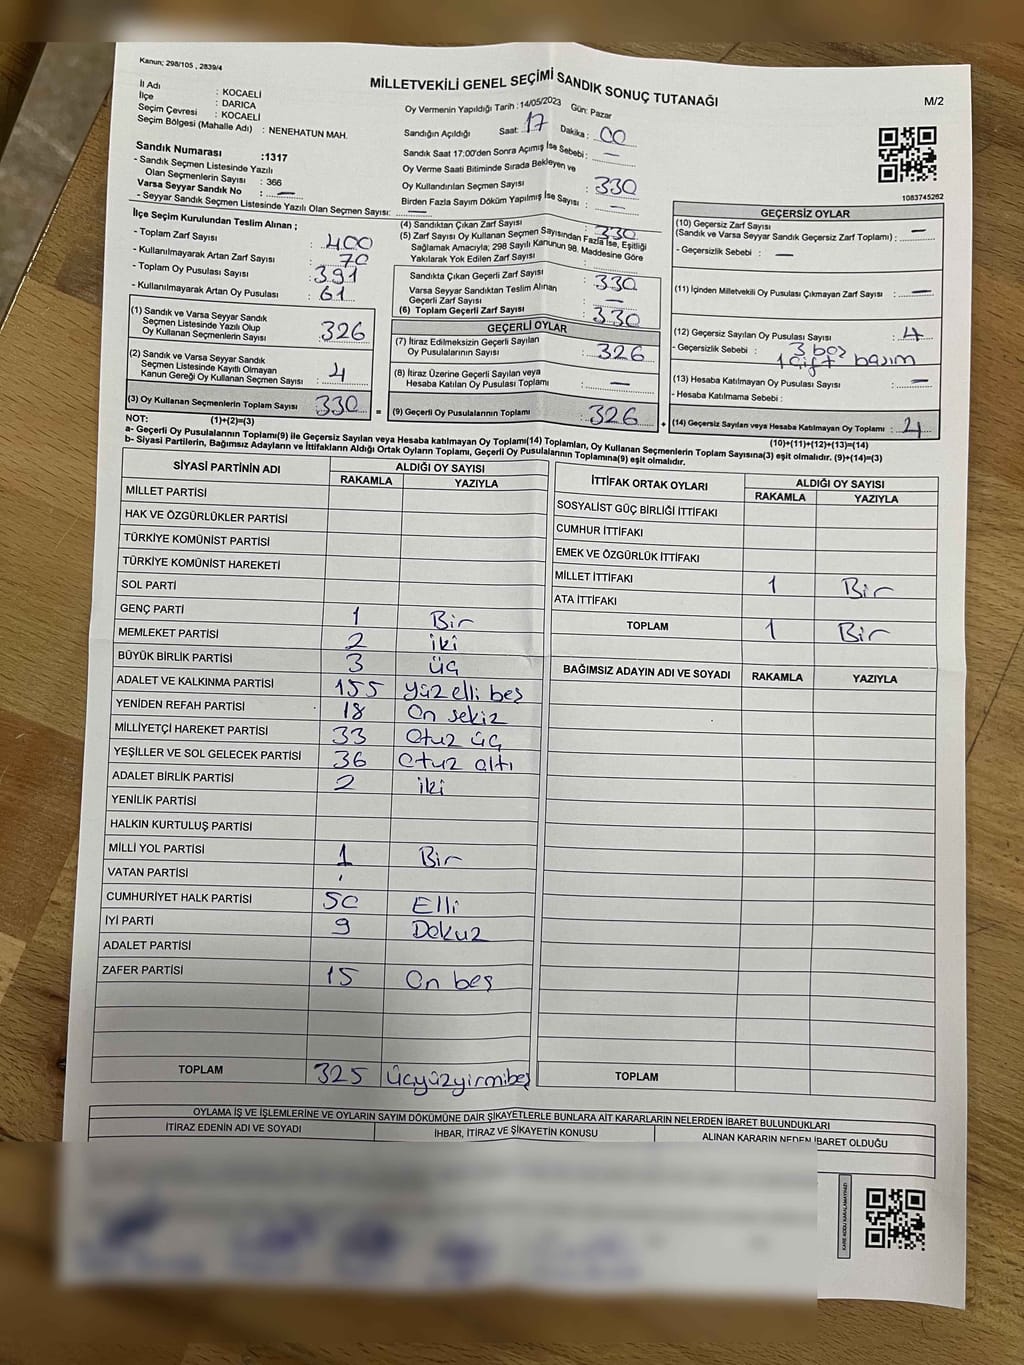 Kanun; 298/105 , 2839/4
MİLLETVEKİLİ GENEL SEÇİMİ SANDIK SONUÇ TUTANAĞI
M/2
İl Adı : KOCAELİ
İlçe : DARICA
Seçim Çevresi : KOCAELİ
Seçim Bölgesi (Mahalle Adı) : NENEHATUN MAH.
Oy Vermenin Yapıldığı Tarih : 14/05/2023 Gün: Pazar
Sandığın Açıldığı Saat: 17 Dakika : 00
Sandık Saat 17:00'den Sonra Açımış İse Sebebi : —
Oy Verme Saati Bitiminde Sırada Bekleyen ve
Oy Kullandırılan Seçmen Sayısı : 330
Birden Fazla Sayım Döküm Yapılmış İse Sayısı : —
1083745262
Sandık Numarası :1317
- Sandık Seçmen Listesinde Yazılı
Olan Seçmenlerin Sayısı : 366
Varsa Seyyar Sandık No : —
- Seyyar Sandık Seçmen Listesinde Yazılı Olan Seçmen Sayısı: —
İlçe Seçim Kurulundan Teslim Alınan ;
- Toplam Zarf Sayısı : 400
- Kullanılmayarak Artan Zarf Sayısı : 70
- Toplam Oy Pusulası Sayısı : 391
- Kullanılmayarak Artan Oy Pusulası : 61
(1) Sandık ve Varsa Seyyar Sandık
Seçmen Listesinde Yazılı Olup
Oy Kullanan Seçmenlerin Sayısı : 326
(2) Sandık ve Varsa Seyyar Sandık
Seçmen Listesinde Kayıtlı Olmayan
Kanun Gereği Oy Kullanan Seçmen Sayısı : 4
(3) Oy Kullanan Seçmenlerin Toplam Sayısı 330 =
(1)+(2)=(3)
(4) Sandıktan Çıkan Zarf Sayısı : 330
(5) Zarf Sayısı Oy Kullanan Seçmen Sayısından Fazla İse, Eşitliği
Sağlamak Amacıyla; 298 Sayılı Kanunun 98. Maddesine Göre
Yakılarak Yok Edilen Zarf Sayısı :
Sandıkta Çıkan Geçerli Zarf Sayısı : 330
Varsa Seyyar Sandıktan Teslim Alınan
Geçerli Zarf Sayısı : —
(6) Toplam Geçerli Zarf Sayısı : 330
GEÇERLİ OYLAR
(7) İtiraz Edilmeksizin Geçerli Sayılan
Oy Pusulalarının Sayısı : 326
(8) İtiraz Üzerine Geçerli Sayılan veya
Hesaba Katılan Oy Pusulası Toplamı : —
(9) Geçerli Oy Pusulalarının Toplamı : 326 +
GEÇERSİZ OYLAR
(10) Geçersiz Zarf Sayısı
(Sandık ve Varsa Seyyar Sandık Geçersiz Zarf Toplamı) : —
- Geçersizlik Sebebi : —
(11) İçinden Milletvekili Oy Pusulası Çıkmayan Zarf Sayısı : —
(12) Geçersiz Sayılan Oy Pusulası Sayısı : 4
- Geçersizlik Sebebi : 3 boş
1 çift basım
(13) Hesaba Katılmayan Oy Pusulası Sayısı : —
- Hesaba Katılmama Sebebi :
(14) Geçersiz Sayılan veya Hesaba Katılmayan Oy Toplamı : 4
(10)+(11)+(12)+(13)=(14)
NOT:
a- Geçerli Oy Pusulalarının Toplamı(9) ile Geçersiz Sayılan veya Hesaba katılmayan Oy Toplamı(14) Toplamları, Oy Kullanan Seçmenlerin Toplam Sayısına(3) eşit olmalıdır. (9)+(14)=(3)
b- Siyasi Partilerin, Bağımsız Adayların ve İttifakların Aldığı Ortak Oyların Toplamı, Geçerli Oy Pusulalarının Toplamına(9) eşit olmalıdır.
SİYASİ PARTİNİN ADI ALDIĞI OY SAYISI
RAKAMLA YAZIYLA
MİLLET PARTİSİ
HAK VE ÖZGÜRLÜKLER PARTİSİ
TÜRKİYE KOMÜNİST PARTİSİ
TÜRKİYE KOMÜNİST HAREKETİ
SOL PARTİ
GENÇ PARTİ 1 Bir
MEMLEKET PARTİSİ 2 iki
BÜYÜK BİRLİK PARTİSİ 3 üç
ADALET VE KALKINMA PARTİSİ 155 yüz elli beş
YENİDEN REFAH PARTİSİ 18 On sekiz
MİLLİYETÇİ HAREKET PARTİSİ 33 Otuz üç
YEŞİLLER VE SOL GELECEK PARTİSİ 36 Otuz altı
ADALET BİRLİK PARTİSİ 2 iki
YENİLİK PARTİSİ
HALKIN KURTULUŞ PARTİSİ
MİLLİ YOL PARTİSİ 1 Bir
VATAN PARTİSİ
CUMHURİYET HALK PARTİSİ 50 Elli
İYİ PARTİ 9 Dokuz
ADALET PARTİSİ
ZAFER PARTİSİ 15 On beş
TOPLAM 325 üçyüzyirmibeş
İTTİFAK ORTAK OYLARI ALDIĞI OY SAYISI
RAKAMLA YAZIYLA
SOSYALİST GÜÇ BİRLİĞİ İTTİFAKI
CUMHUR İTTİFAKI
EMEK VE ÖZGÜRLÜK İTTİFAKI
MİLLET İTTİFAKI 1 Bir
ATA İTTİFAKI
TOPLAM 1 Bir
BAĞIMSIZ ADAYIN ADI VE SOYADI RAKAMLA YAZIYLA
TOPLAM
OYLAMA İŞ VE İŞLEMLERİNE VE OYLARIN SAYIM DÖKÜMÜNE DAİR ŞİKAYETLERLE BUNLARA AİT KARARLARIN NELERDEN İBARET BULUNDUKLARI
İTİRAZ EDENİN ADI VE SOYADI İHBAR, İTİRAZ VE ŞİKAYETİN KONUSU ALINAN KARARIN NEDEN İBARET OLDUĞU
KARE KODU KARALAMAYINIZ!